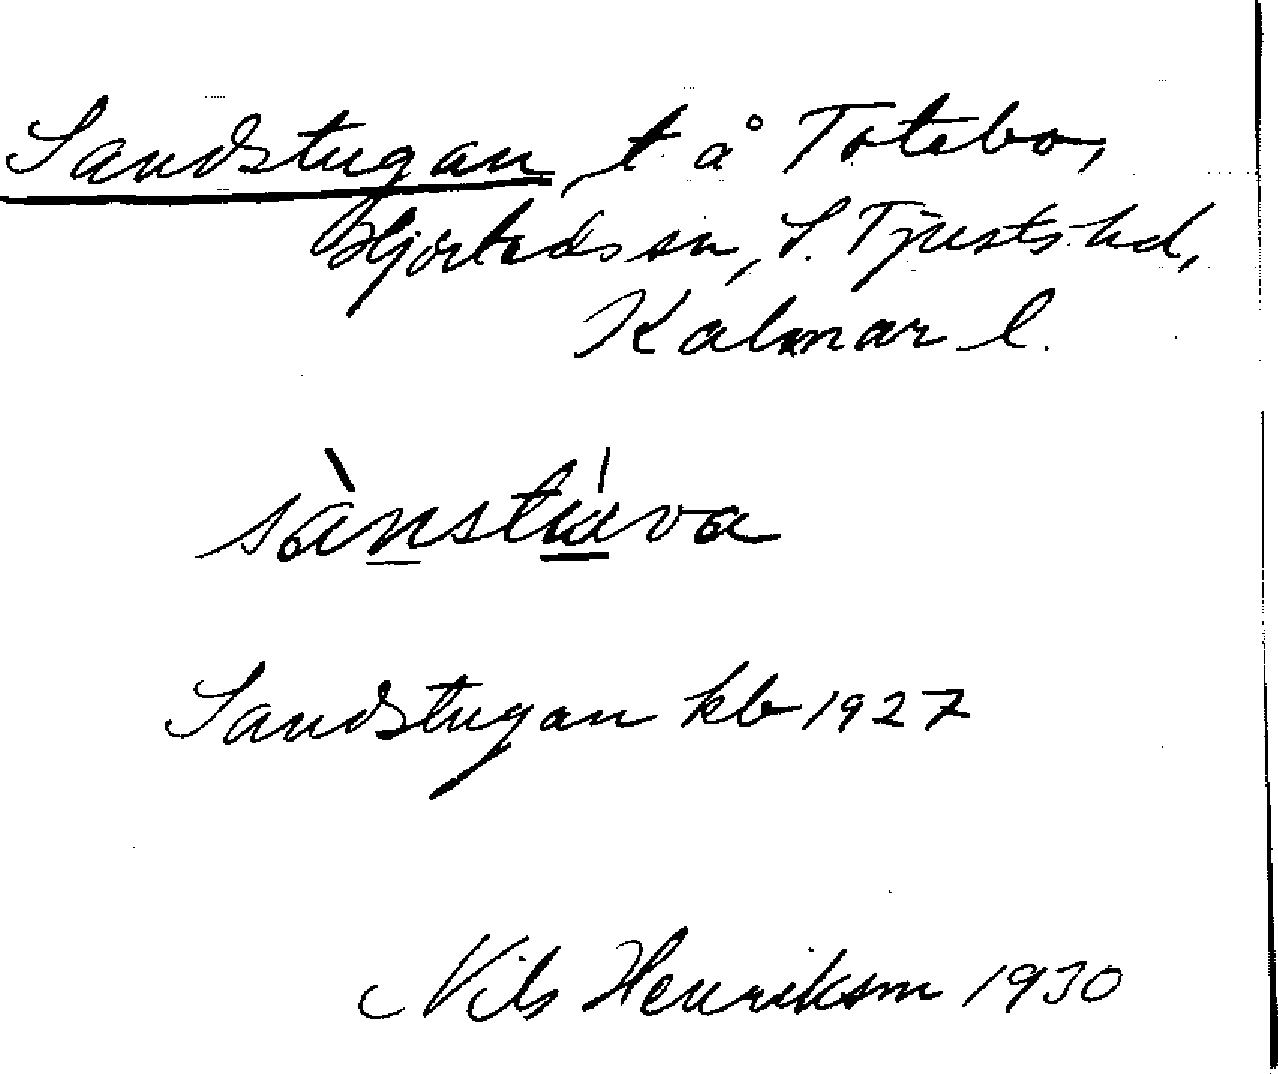 Sandstugan, t å Totebo,
Hjorteds sn, S. Tjusts hd,
Kalmar l.
sànstúva
Sandstugan kb 1927
Nils Henrikson 1930